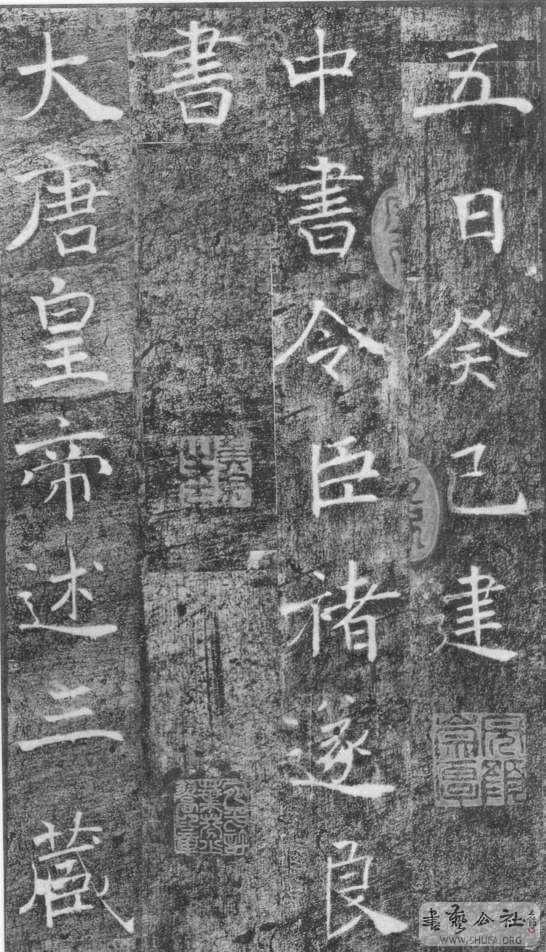 五日癸巳建
中書令臣褚遂良
書
大唐皇帝述三藏
書藝公社
WWW.SHUFA.ORG